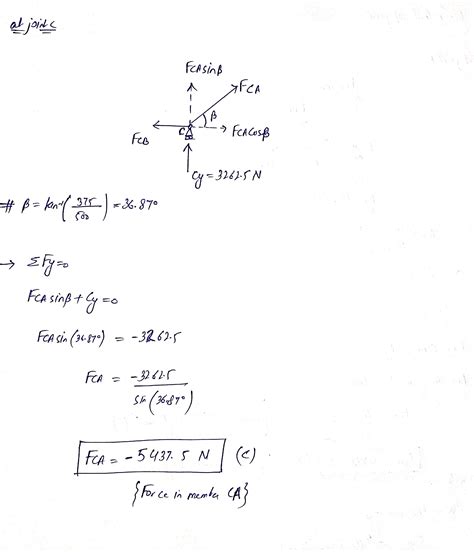 at joint C
FCA sinβ
FCA
β
C
FCA cosβ
FCB
Cy = 3262.5 N
# β = tan⁻¹(375/500) = 36.87°
→ ΣFy=0
FCA sinβ + Cy = 0
FCA sin(36.87°) = -3262.5
FCA = -3262.5
sin(36.87°)
FCA = -5437.5 N (C)
{Force in member CA}